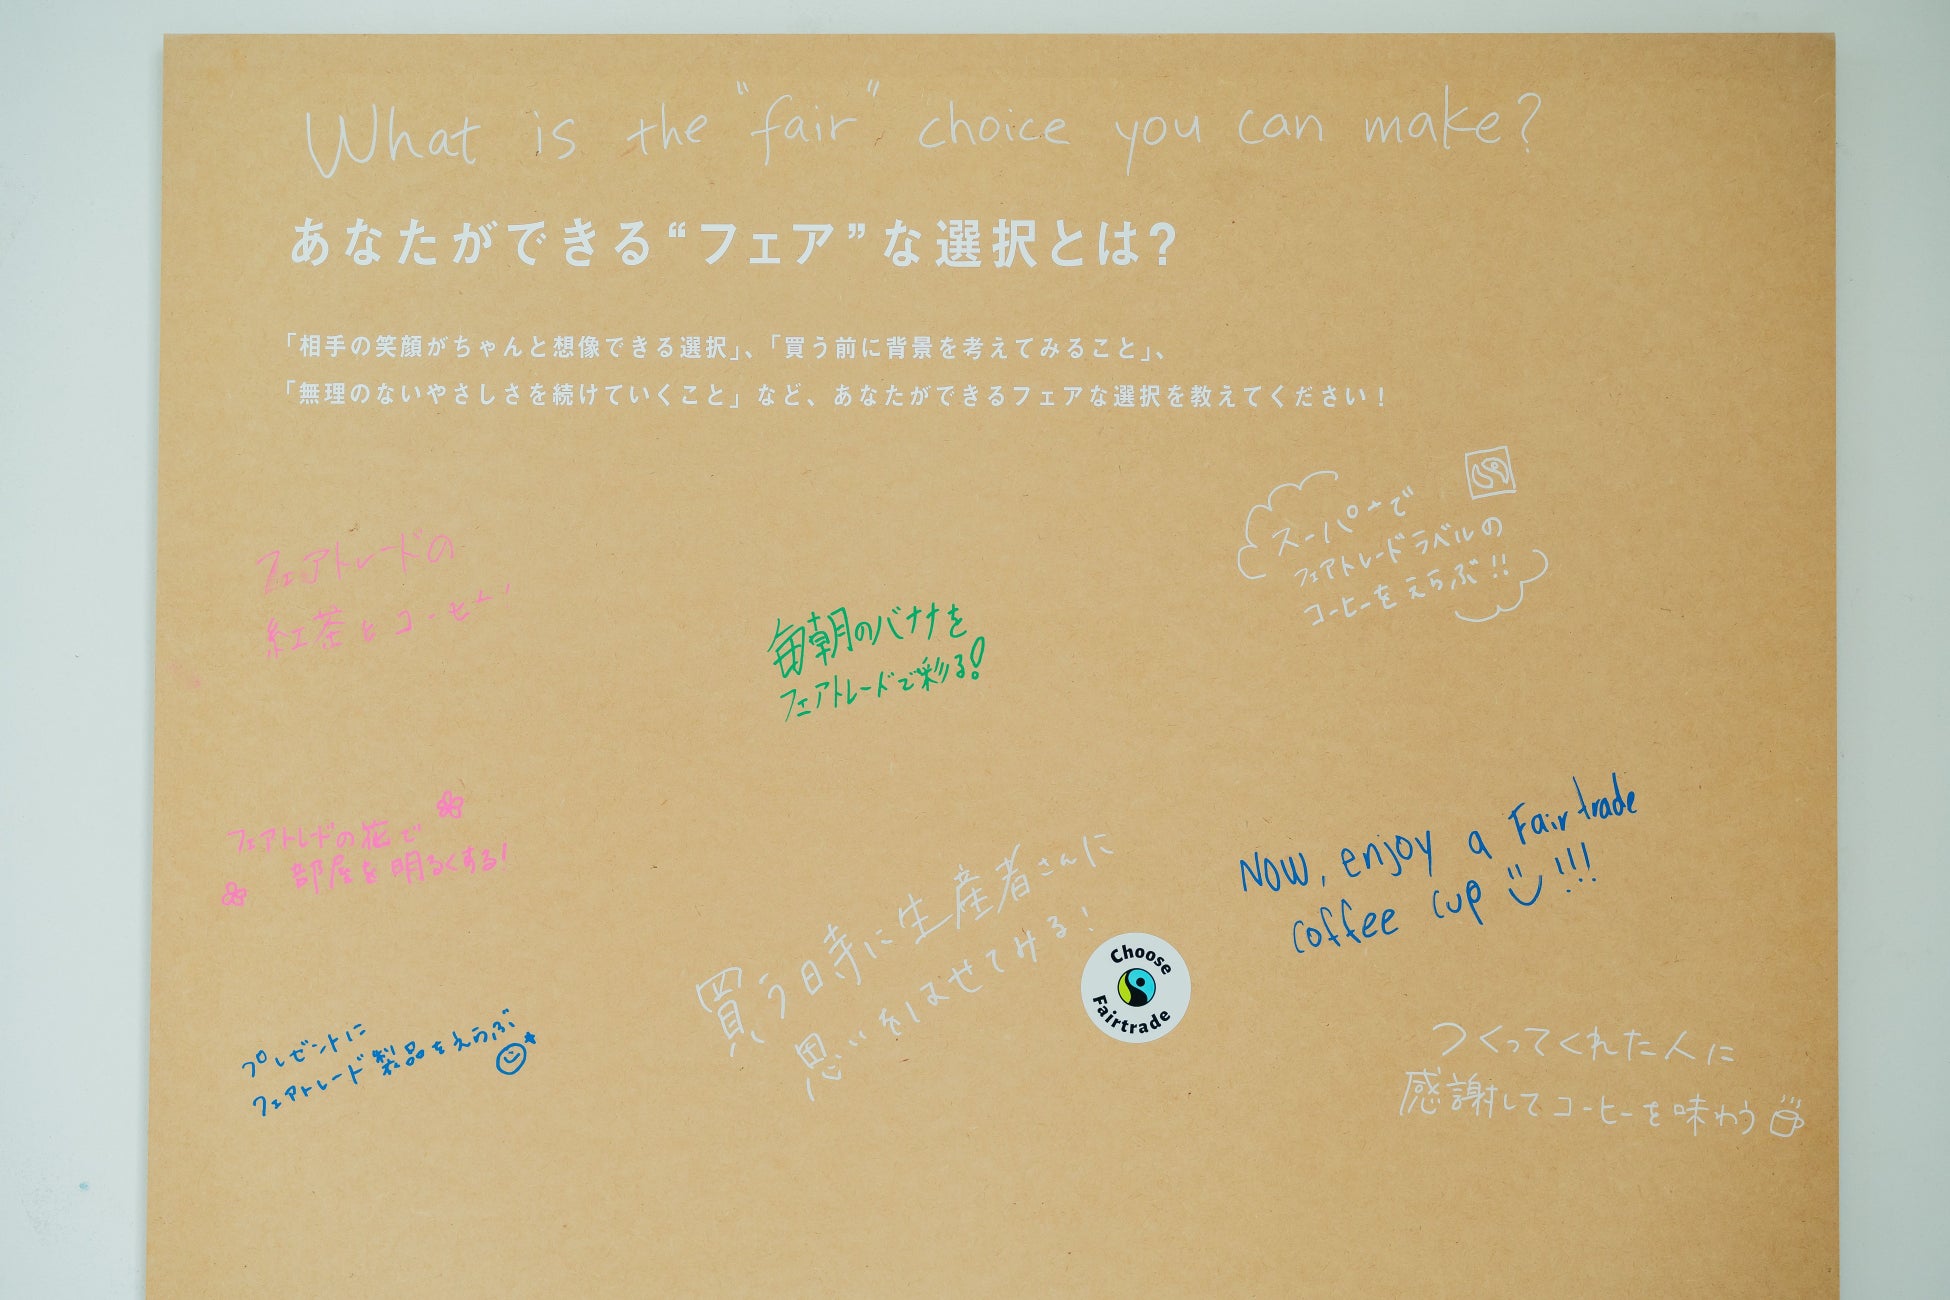 What is the "fair" choice you can make?
あなたができる“フェア”な選択とは？
「相手の笑顔がちゃんと想像できる選択」、「買う前に背景を考えてみること」、
「無理のないやさしさを続けていくこと」など、あなたができるフェアな選択を教えてください！
フェアトレードの
紅茶とコーヒー
毎朝のバナナを
フェアトレードで彩る！
スーパーで
フェアトレードラベルの
コーヒーをえらぶ!!
フェアトレードの花で
部屋を明るくする！
買う時に生産者さんに
思いをはせてみる！
Now, enjoy a Fairtrade
coffee cup !!!
プレゼントに
フェアトレード製品をえらぶ
Choose
Fairtrade
つくってくれた人に
感謝してコーヒーを味わう